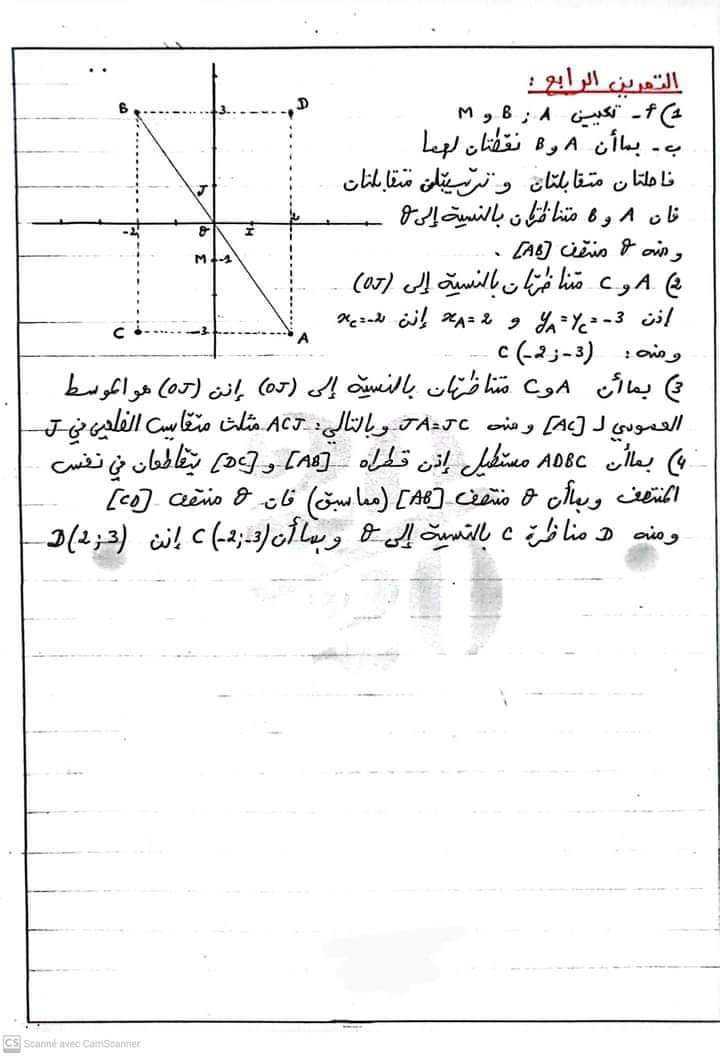 التمرين الرابع :
1) أ- تعيين A ; B و M
ب- بما أن A و B نقطتان لهما
فاصلتان متقابلتان و ترتيبتان متقابلتان
فان A و B متناظرتان بالنسبة إلى O
ومنه O منتصف [AB] .
2) A و C متناظرتان بالنسبة إلى (OJ)
اذن yA = yC = -3 و xA = 2 إذن xC = -2
ومنه : C (-2 ; -3)
3) بما أن A و C متناظرتان بالنسبة إلى (OJ) إذن (OJ) هو الموسط
العمودي لـ [AC] ومنه JA = JC وبالتالي : ACJ مثلث متقايس الضلعين في J
4) بما أن ADBC مستطيل إذن قطراه [AB] و [DC] يتقاطعان في نفس
المنتصف وبما أن O منتصف [AB] (مما سبق) فان O منتصف [CD]
ومنه D مناظرة C بالنسبة إلى O وبما أن C (-2 ; -3) إذن D(2 ; 3)
B 3 D
J
-2 O I 2
M -1
C -3 A
CS Scanné avec CamScanner